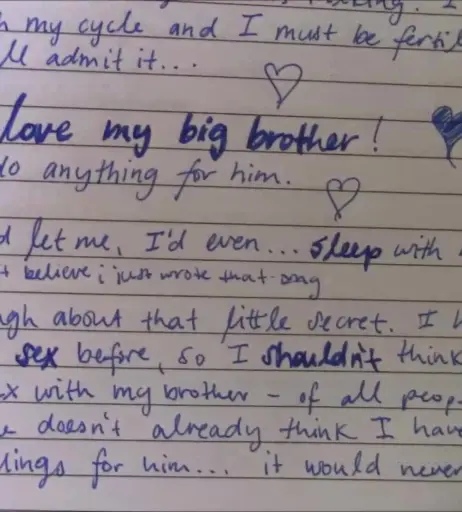 my cycle and I must be
admit it...
love my big brother!
do anything for him.
let me, I'd even... sleep with
believe i just wrote that omg
about that little secret. I
sex before, so I shouldn't think
with my brother - of all
doesn't already think I have
for him... it would never